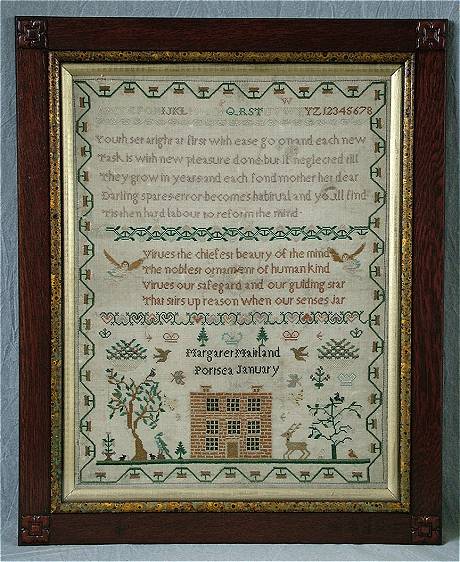 IJKL QRST W YZ12345678
Youth set aright at first with ease go on and each new
Task is with new pleasure done but if neglected till
They grow in years and each fond mother her dear
Darling spares error becomes habitual and you ll find
Tis then hard labour to reform the mind
Virues the chiefest beauty of the mind
The noblest ornament of human kind
Virues our safegard and our guiding star
That stirs up reason when our senses jar
Margaret Maitland
Portsea January